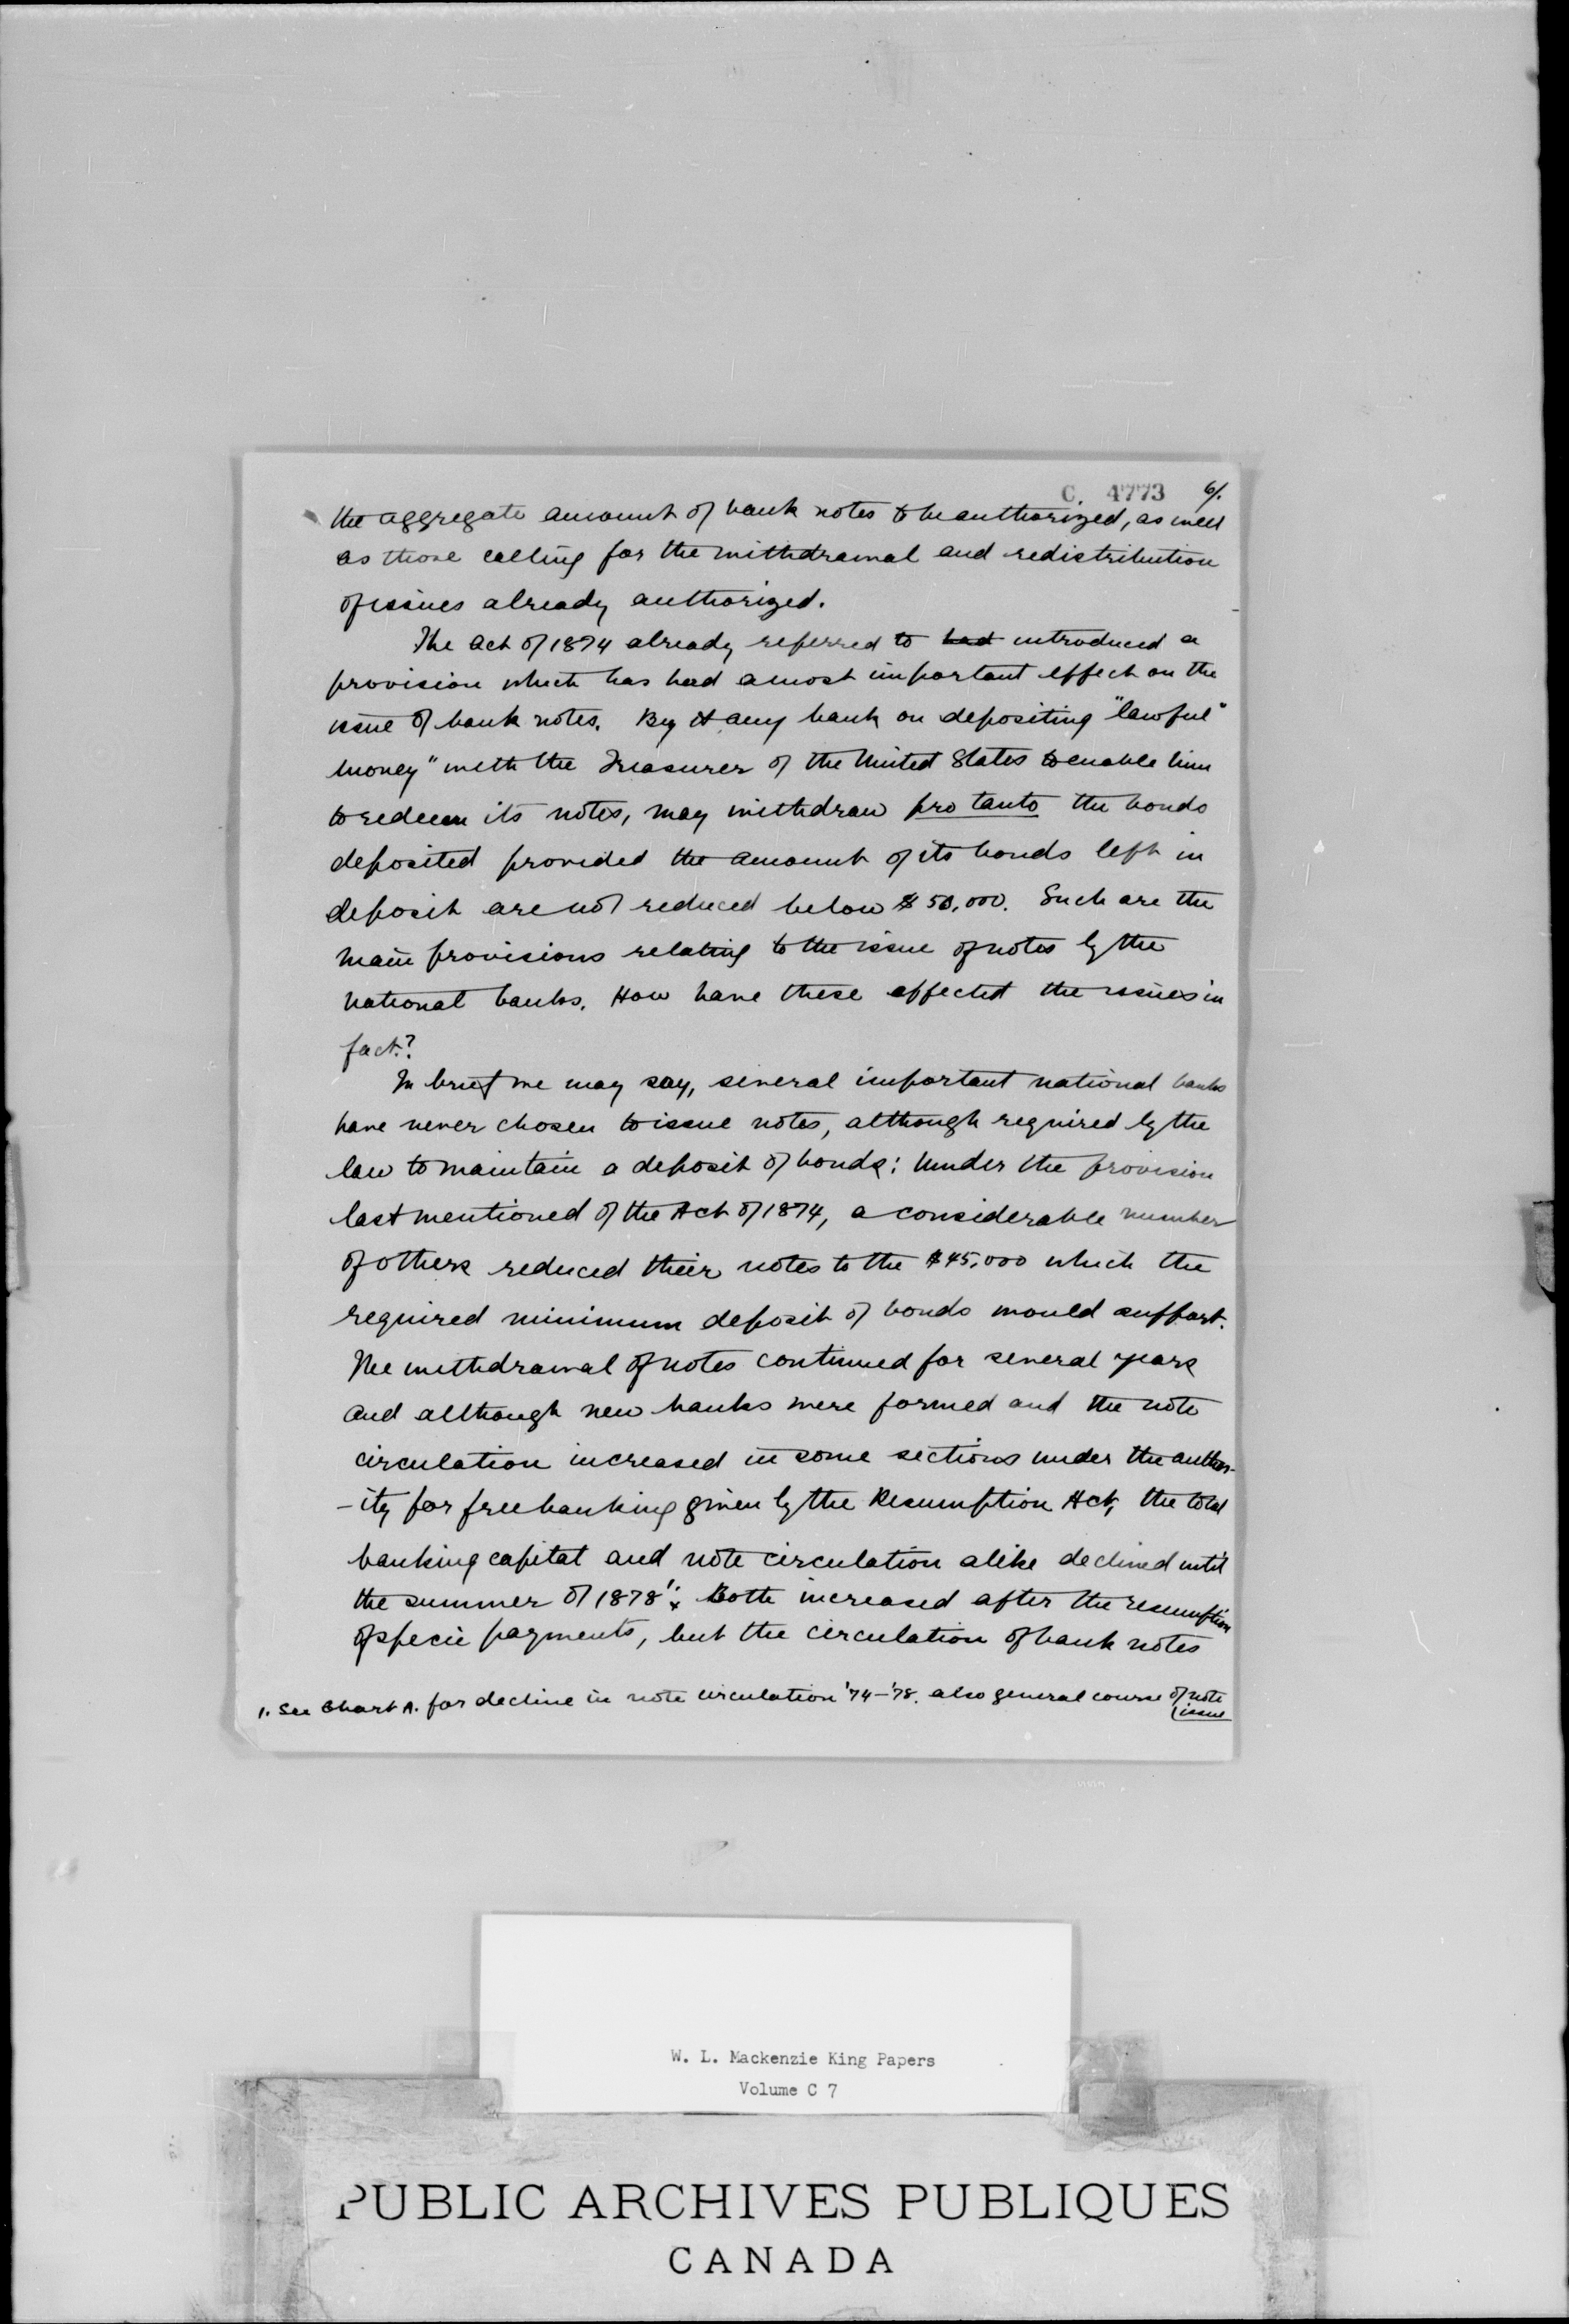 C. 4773 6/.
the aggregate amount of bank notes to be authorized, as well
as those calling for the withdrawal and redistribution
of issues already authorized.
The Act of 1874 already referred to had introduced a
provision which has had a most important effect on the
issue of bank notes. By it any bank on depositing "lawful"
money" with the Treasurer of the United States to enable him
to redeem its notes, may withdraw pro tanto the bonds
deposited provided the amount of its bonds left in
deposit are not reduced below $50,000. Such are the
main provisions relating to the issue of notes by the
national banks. How have these affected the issues in
fact?
In brief we may say, several important national banks
have never chosen to issue notes, although required by the
law to maintain a deposit of bonds; Under the provision
last mentioned of the Act of 1874, a considerable number
of others reduced their notes to the $45,000 which the
required minimum deposit of bonds would support.
The withdrawal of notes continued for several years
and although new banks were formed and the note
circulation increased in some sections under the author-
-ity for free banking given by the Resumption Act, the total
banking capital and note circulation alike declined until
the summer of 1878¹. Both increased after the resumption
of specie payments, but the circulation of bank notes
1. See Chart A. for decline in note circulation '74–'78. also general course of note
issue
W. L. Mackenzie King Papers
Volume C 7
PUBLIC ARCHIVES PUBLIQUES
CANADA